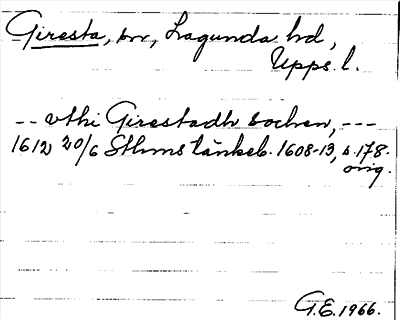 Giresta, sn, Lagunda hd,
Upps. l.
-- vthi Girestadh sochen, ---
1612 20/6 Sthms tänkeb. 1608-13, s. 178.
orig.
G.E. 1966.